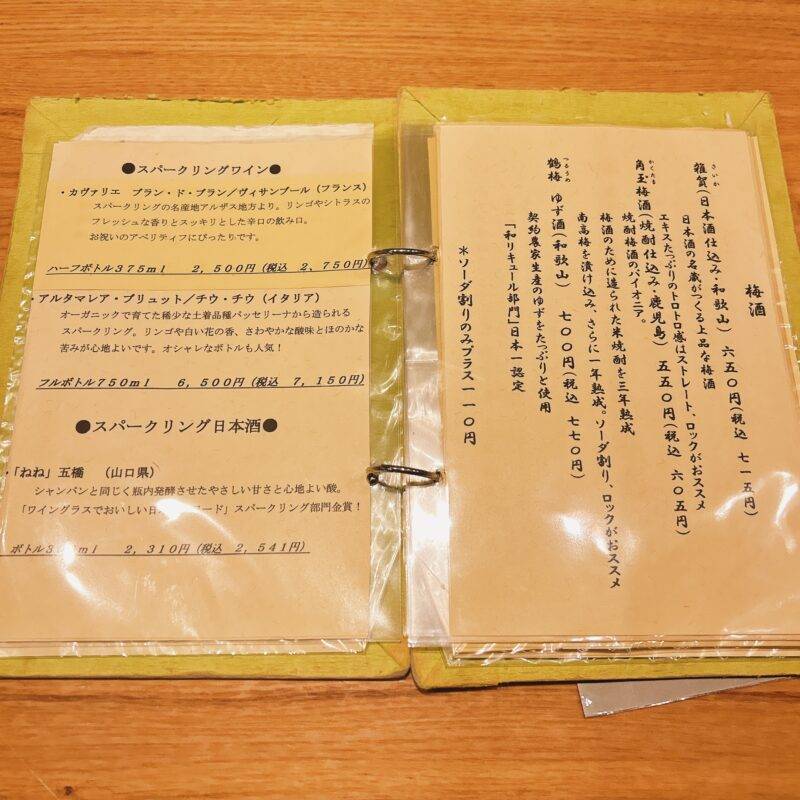 ●スパークリングワイン●
・カヴァリエ ブラン・ド・ブラン／ヴィサンブール（フランス）
スパークリングの名産地アルザス地方より。リンゴやシトラスの
フレッシュな香りとスッキリとした辛口の飲み口。
お祝いのアペリティフにぴったりです。
ハーフボトル３７５ｍｌ ２，５００円（税込 ２，７５０円）
・アルタマレア・ブリュット／チウ・チウ（イタリア）
オーガニックで育てた稀少な土着品種パッセリーナから造られる
スパークリング。リンゴや白い花の香、さわやかな酸味とほのかな
苦みが心地よいです。オシャレなボトルも人気！
フルボトル７５０ｍｌ ６，５００円（税込 ７，１５０円）
●スパークリング日本酒●
・「ねね」五橋 （山口県）
シャンパンと同じく瓶内発酵させたやさしい甘さと心地よい酸。
「ワイングラスでおいしい日 ード」スパークリング部門金賞！
ボトル３ ｍｌ ２，３１０円（税込 ２，５４１円）
梅酒
雑賀（日本酒仕込み・和歌山） 六五〇円（税込 七一五円）
さいか
日本酒の名蔵がつくる上品な梅酒
エキスたっぷりのトロトロ感はストレート、ロックがおススメ
角玉梅酒（焼酎仕込み・鹿児島） 五五〇円（税込 六〇五円）
かくたま
焼酎梅酒のパイオニア。
梅酒のために造られた米焼酎を三年熟成
南高梅を漬け込み、さらに一年熟成。ソーダ割り、ロックがおススメ
鶴梅 ゆず酒（和歌山） 七〇〇円（税込 七七〇円）
つるうめ
契約農家生産のゆずをたっぷりと使用
「和リキュール部門」日本一認定
＊ソーダ割りのみプラス一一〇円